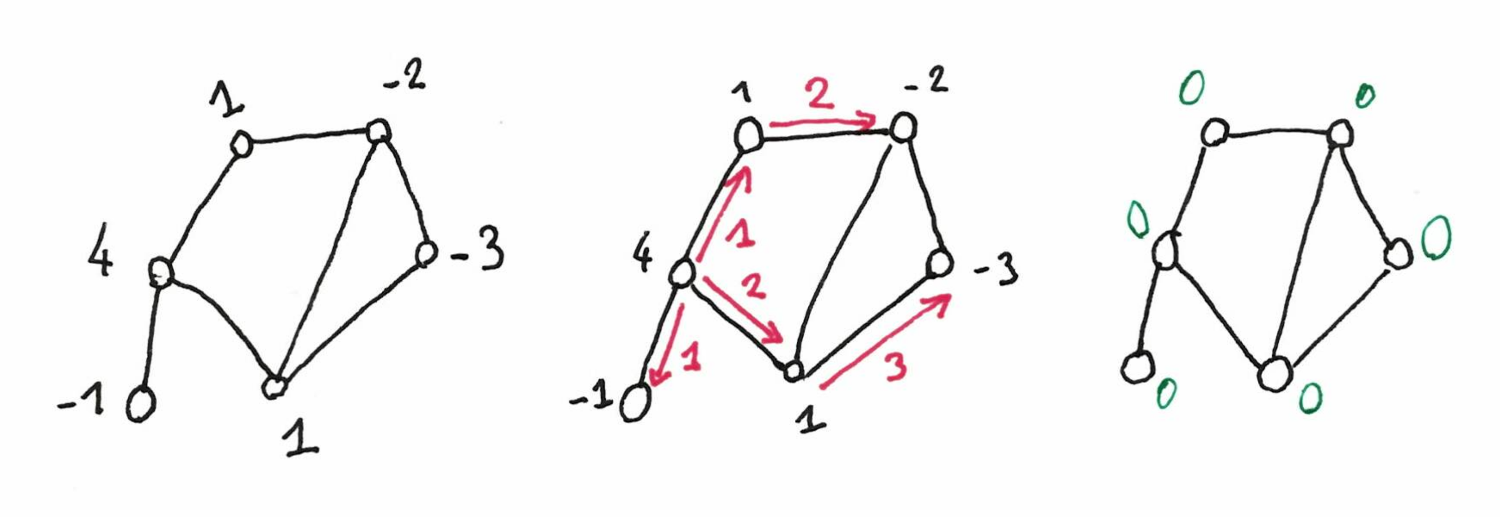 1 -2
4 -3
-1 1
1 2 -2
4 1 2 -3
-1 1 3
1
0 0
0 0
0 0